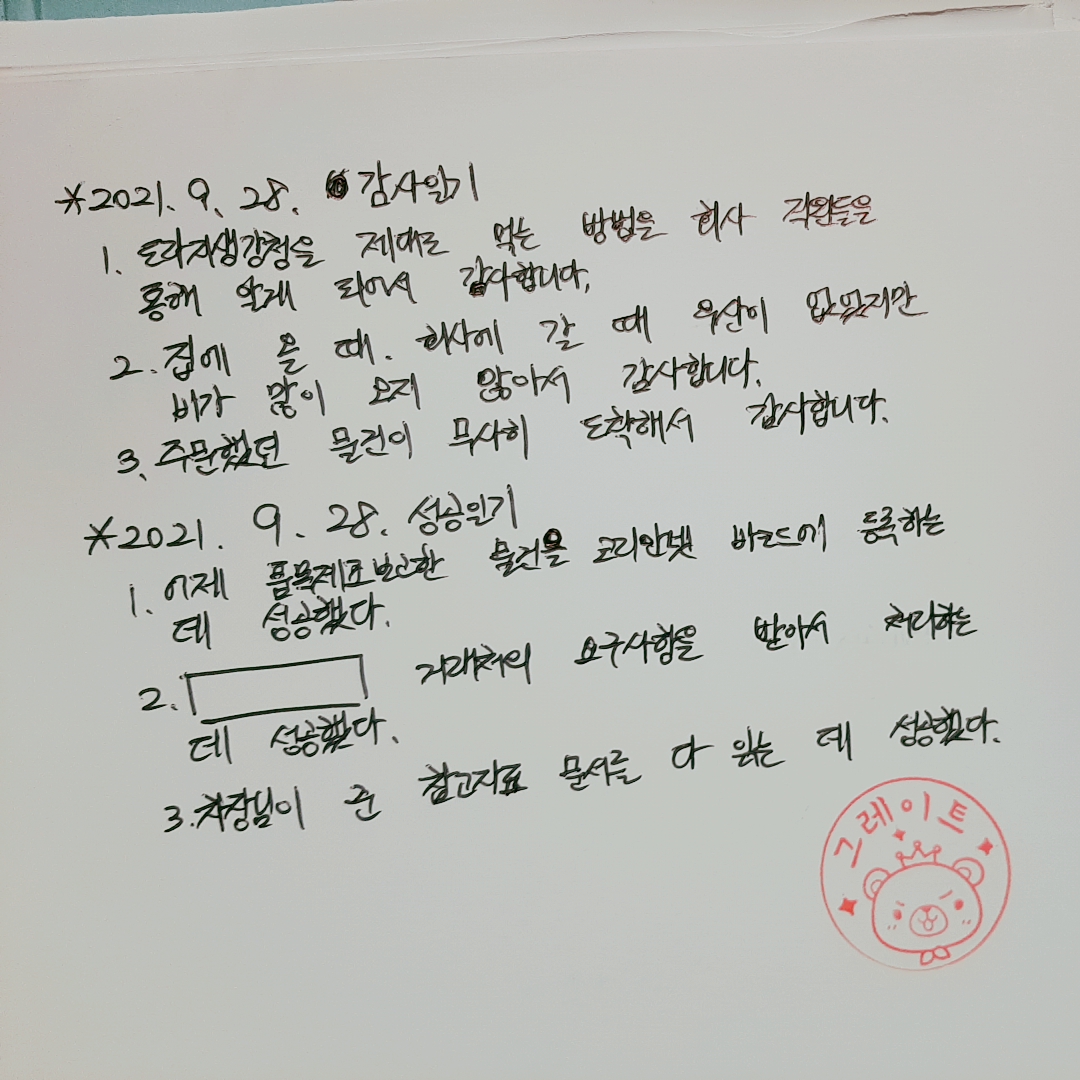 *2021. 9. 28. 감사일기
1. 도라지생강청을 제대로 먹는 방법을 회사 직원들을
통해 알게 되어서 감사합니다.
2. 집에 올 때, 회사에 갈 때 우산이 없었지만
비가 많이 오지 않아서 감사합니다.
3. 주문했던 물건이 무사히 도착해서 감사합니다.
*2021. 9. 28. 성공일기
1. 어제 품목제조보고한 물건을 코리안넷 바코드에 등록하는
데 성공했다.
2. 거래처의 요구사항을 받아서 처리하는
데 성공했다.
3. 차장님이 준 참고자료 문서를 다 읽는 데 성공했다.
그레이트